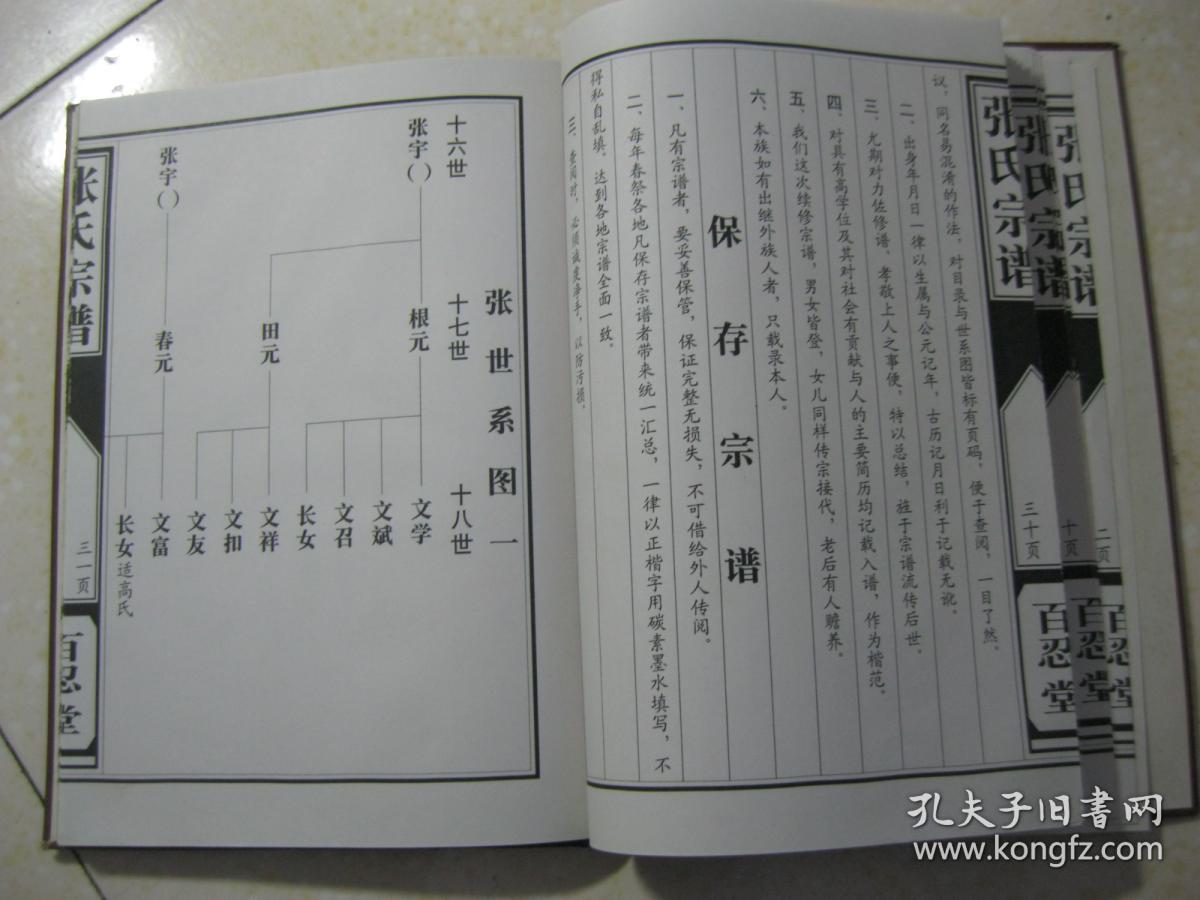 议，同名易混淆的作法，对目录与世系图皆标有页码，便于查阅，一目了然。
二、出身年月日一律以生属与公元记年，古历记月日利于记载无讹。
三、尤期对力佐修谱、孝敬上人之事便，特以总结，旌于宗谱流传后世。
四、对具有高学位及其对社会有贡献与人的主要简历均记载入谱，作为楷范。
五、我们这次续修宗谱，男女皆登，女儿同样传宗接代，老后有人赡养。
六、本族如有出继外族人者，只载录本人。
保存宗谱
一、凡有宗谱者，要妥善保管，保证完整无损失，不可借给外人传阅。
二、每年春祭各地凡保存宗谱者带来统一汇总，一律以正楷字用碳素墨水填写，不
得私自乱填。达到各地宗谱全面一致。
三、查阅时，必须诚虔净手，以防污损。
张氏宗谱
三十页
百忍堂
张氏宗谱
十页
百忍堂
张氏宗谱
二页
百忍堂
张世系图一
十六世
十七世
十八世
张宇（）
根元
文学
文斌
文召
长女
田元
文祥
文扣
文友
张宇（）
春元
文富
长女适高氏
张氏宗谱
三一页
百忍堂
孔夫子旧书网
www.kongfz.com